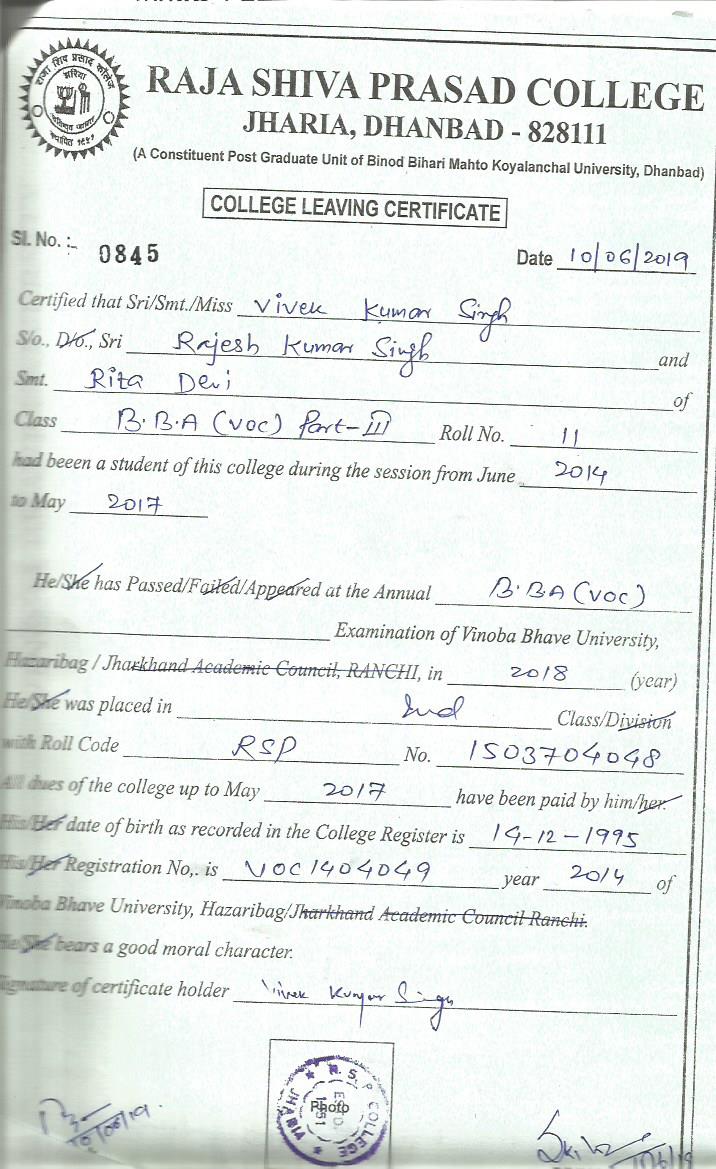 राजा शिव प्रसाद कॉलेज
झरिया
RAJA SHIVA PRASAD COLLEGE
JHARIA, DHANBAD - 828111
(A Constituent Post Graduate Unit of Binod Bihari Mahto Koyalanchal University, Dhanbad)
COLLEGE LEAVING CERTIFICATE
Sl. No. :- 0845
Date 10/06/2019
Certified that Sri/Smt./Miss Vivek Kumar Singh
S/o., D/o., Sri Rajesh Kumar Singh and
Smt. Rita Devi of
Class B.B.A (VOC) Part-III Roll No. 11
had beeen a student of this college during the session from June 2014
to May 2017
He/She has Passed/Failed/Appeared at the Annual B.B.A (VOC)
Examination of Vinoba Bhave University,
Hazaribag / Jharkhand Academic Council, RANCHI, in 2018 (year)
He/She was placed in IInd Class/Division
with Roll Code RSP No. 1503704048
All dues of the college up to May 2017 have been paid by him/her.
His/Her date of birth as recorded in the College Register is 14-12-1995
His/Her Registration No,. is VOC1404049 year 2014 of
Vinoba Bhave University, Hazaribag/Jharkhand Academic Council Ranchi.
He/She bears a good moral character.
Signature of certificate holder Vivek Kumar Singh
R. S. P COLLEGE
ESTD.
1951
Photo
JHARIA
10/06/19